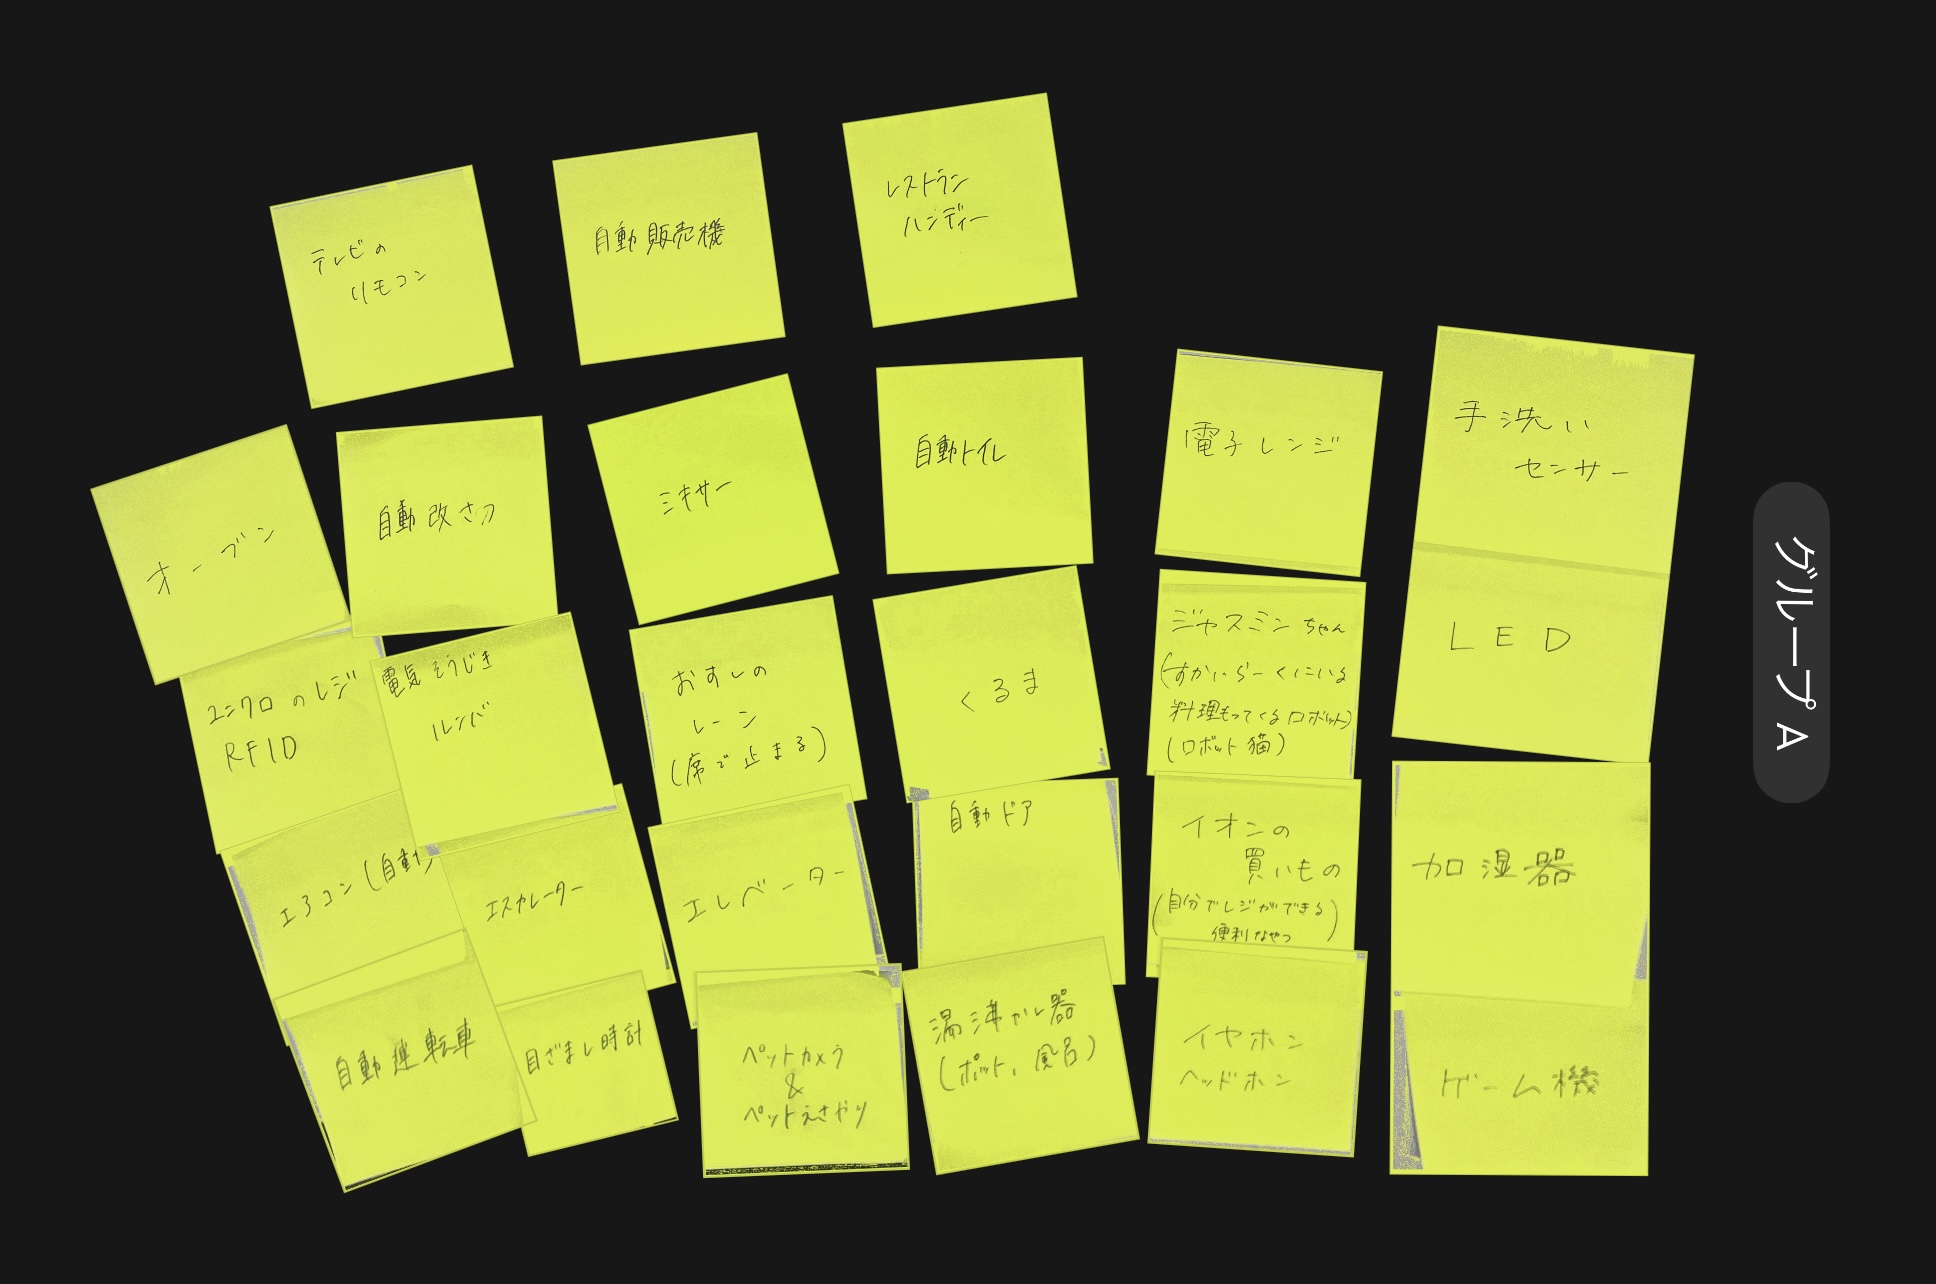 テレビの
リモコン
自動販売機
レストラン
ハンディー
オーブン
自動改さつ
ミキサー
自動トイレ
電子レンジ
手洗い
センサー
ユニクロのレジ
RFID
電気そうじき
ルンバ
おすしの
レーン
(席で止まる)
くるま
ジャスミンちゃん
(すかいらーくにいる
料理もってくるロボット)
(ロボット猫)
LED
エアコン(自動)
エスカレーター
エレベーター
自動ドア
イオンの
買いもの
(自分でレジができる)
便利なやつ
加湿器
自動運転車
目ざまし時計
ペットカメラ
&
ペットえさやり
湯沸かし器
(ポット、風呂)
イヤホン
ヘッドホン
ゲーム機
グループ A